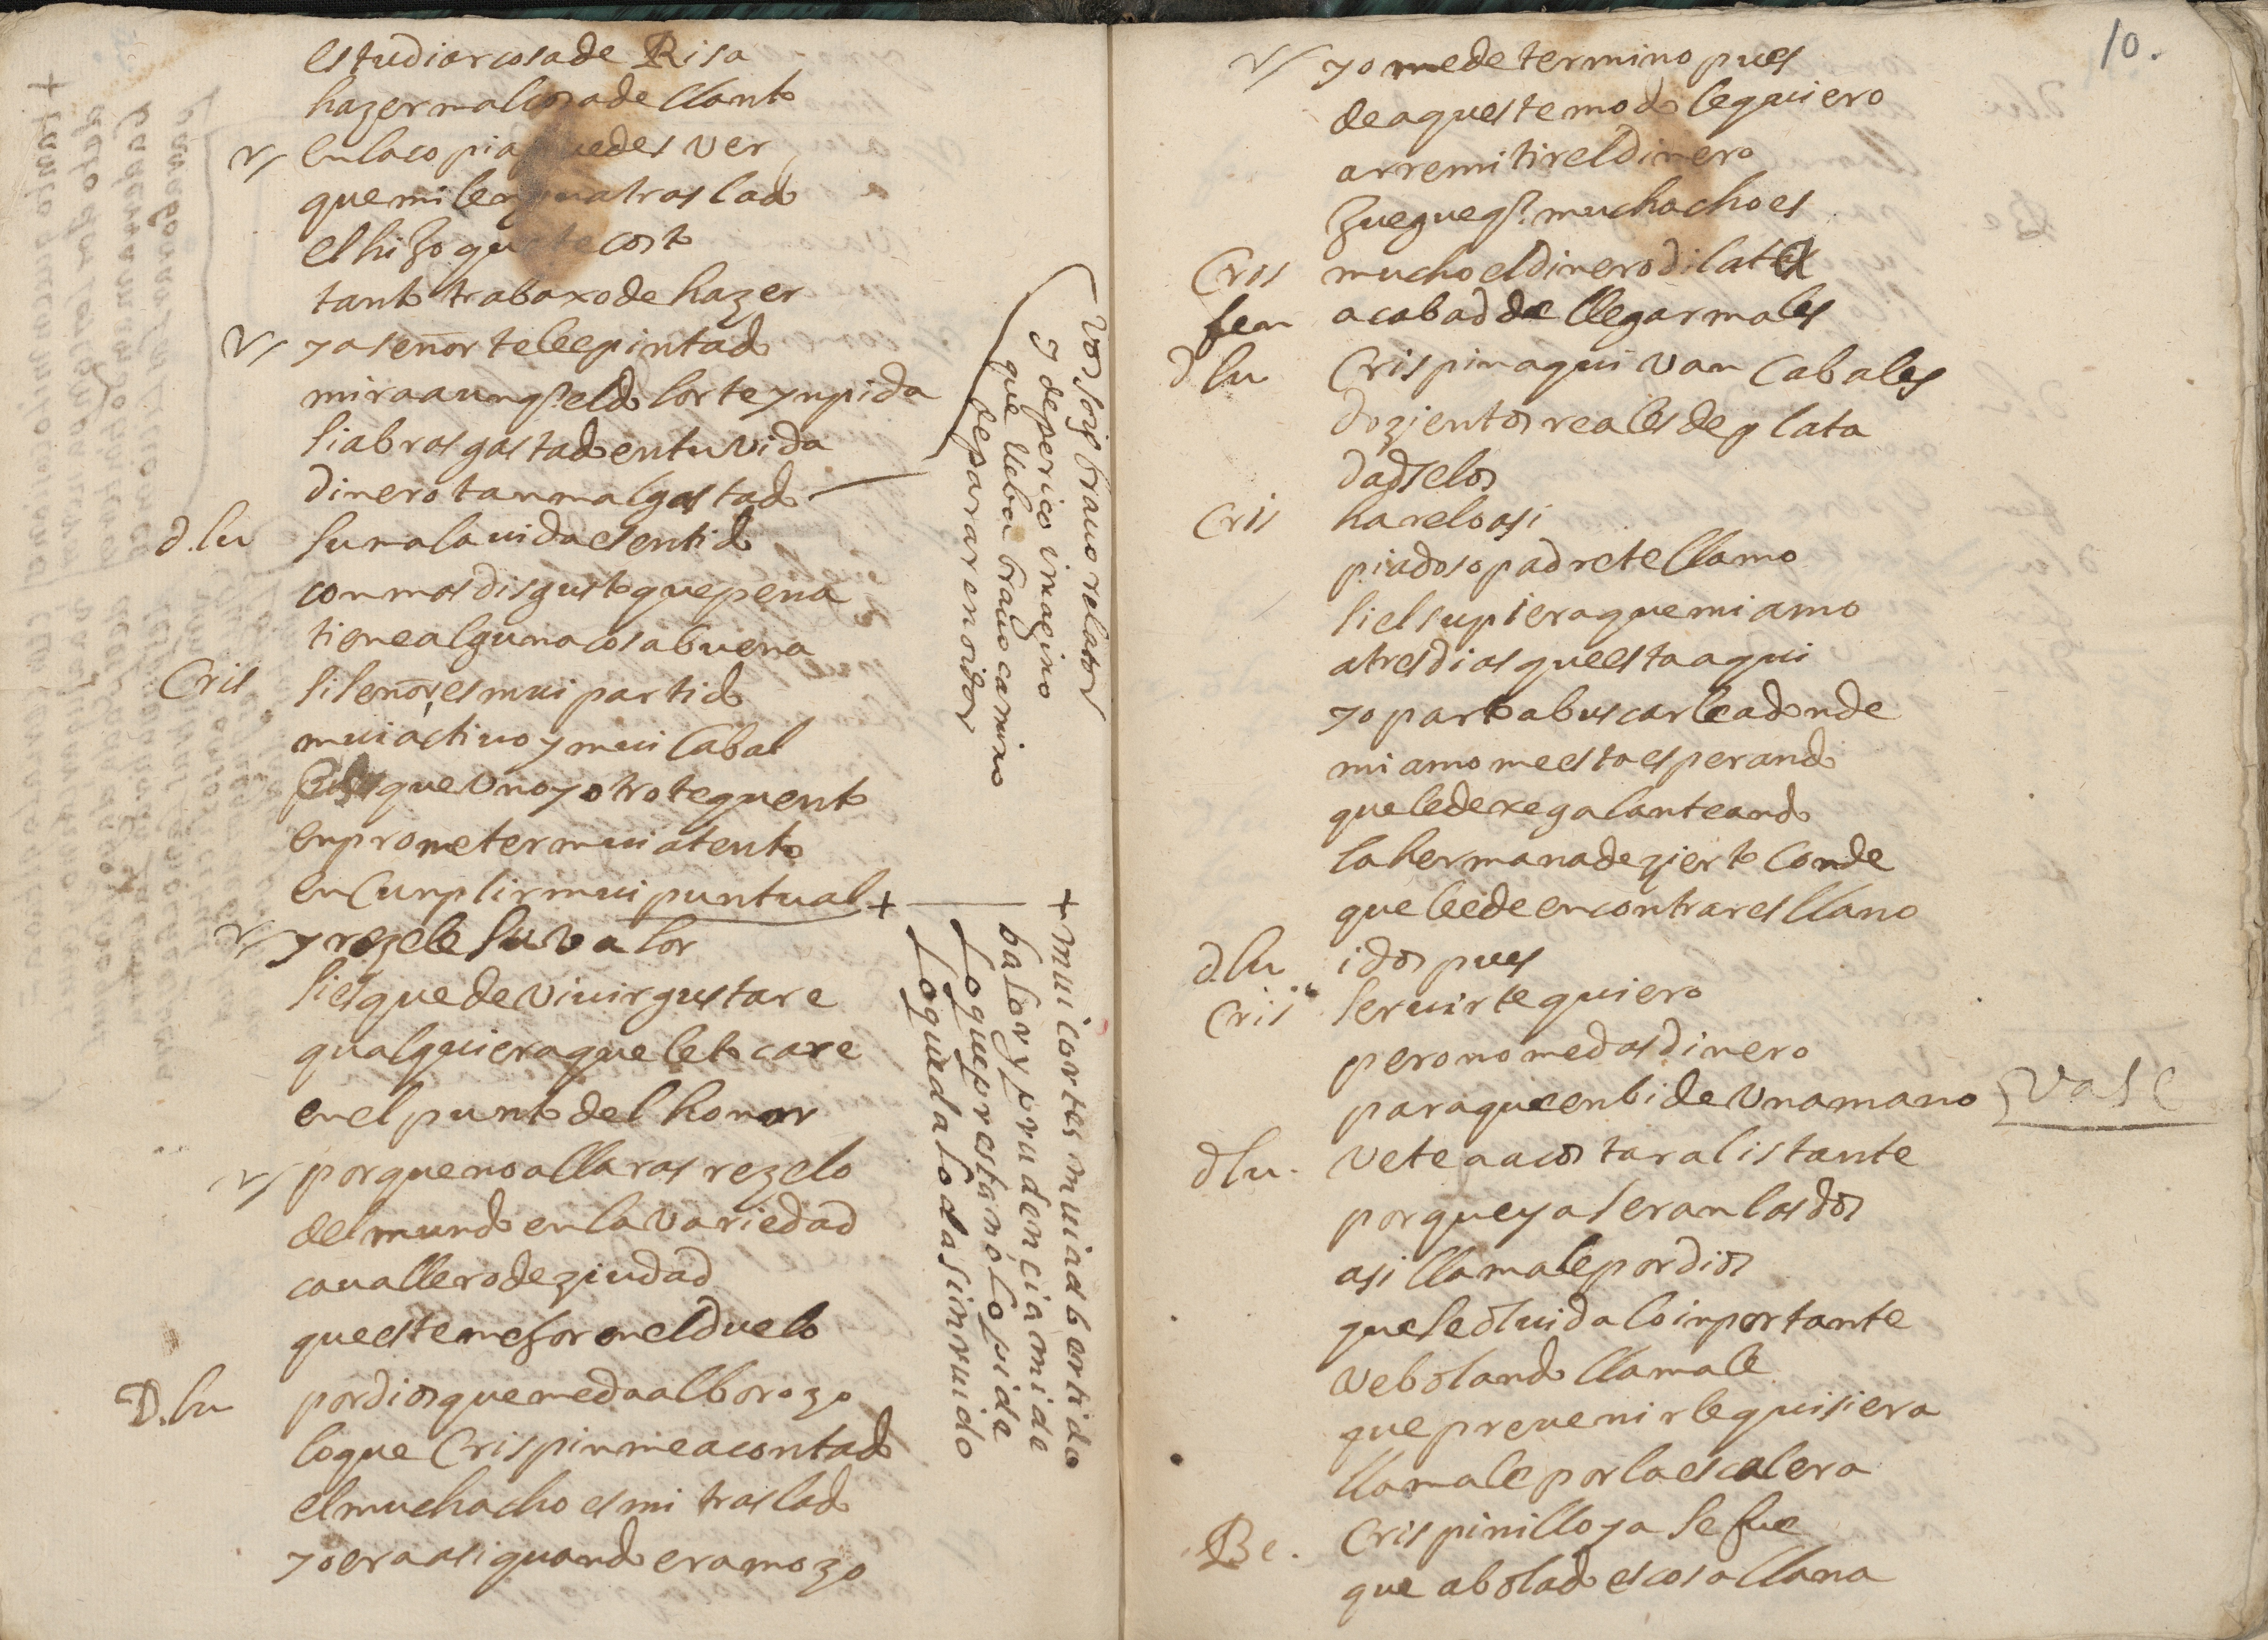 estudiar cosa de Risa
hazer mal cosa de llanto
en la copia puedes ver
que mi lengua traslado
el hiʒo que te costo
tanto trabaxo de hazer
ya señor te lee pintado
mira aunqᵉ el dolor te ynpida
si abras gastado en tu vida
dinero tan mal gastado
d. lu suma la uida e sentido
con mas disgusto que pena
tiene alguna cosa buena
Cris si señor, es mui partido
mui actiuo y mui Cabal
que uno y otro te quento
en prometer mui atento
en Cunplir mui puntual +
y rezele su valor
si es que de viuir gustare
qualquiera que le tocare
en el punto del honor
porque no allaras rezelo
del mundo en la variedad
cauallero de ziudad
que este mejor en el duelo
D. lu por dios que me da alborozo
lo que Crispin me a contado
el muchacho es mi traslado
yo era asi quando era mozo
Vos sois brauo relator
y de perico imagino
que lleba brauo camino
de parar en oidor
+ mui cortes mui adbertido
balor y prudencia mide
lo que prestanò lo pide
lo que da lo da sin ruido
10.
yo me determino pues
de aqueste modo le quiero
a rremitir el dinero
ʒuegue qᵉ. muchacho es
Cris mucho el dinero dilata
fer acabad de llegar males
d lu Crispin aqui van Cabales
dozientos reales de plata
dadselos
Cris harelo asi
piadoso padre te llamo
si el supiera que mi amo
a tres dias que esta aqui
yo parto a buscarle adonde
mi amo me esta esperando
que le dexe galanteando
la hermana de zierto Conde
que lee de encontrar es llano
d. lu idos pues
Cris seruirte quiero
pero no me das dinero
para que enbide una mano vase
d lu. vete a acostar al istante
porque ya seran las dos
asi llamale por dios
que se oluida lo inportante
ve bolando llamale
que preuenirle quisiera
llamale por la escalera
Be. Crispinillo ya se fue
que a bolado es cosa llana